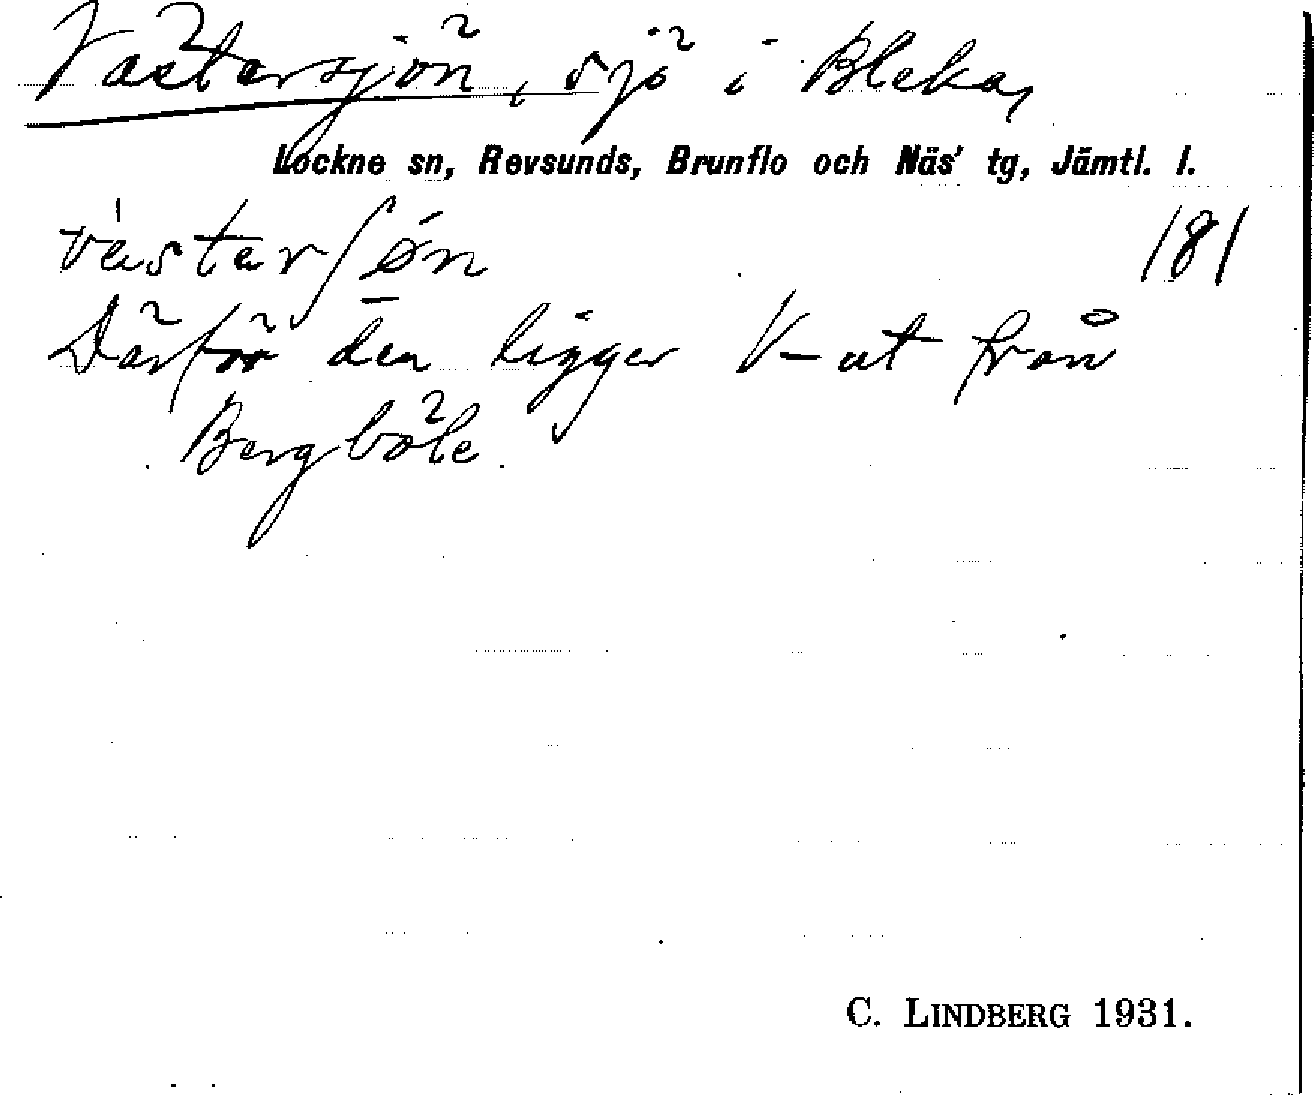 Västersjön, sjö i Bleka,
Lockne sn, Revsunds, Brunflo och Näs' tg, Jämtl. l.
västerʃøn 181
Därför den ligger V-ut från
Bergböle.
C. LINDBERG 1931.